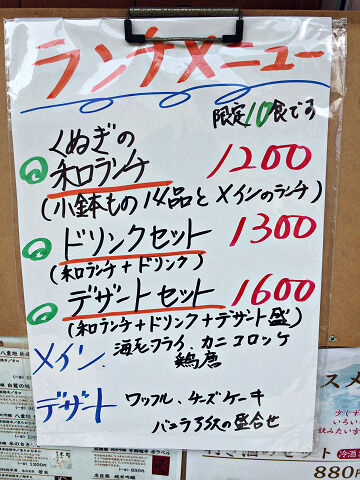 ランチメニュー
限定10食です
くぬぎの
和ランチ 1200
(小鉢もの14品とメインのランチ)
ドリンクセット 1300
(和ランチ+ドリンク)
デザートセット 1600
(和ランチ+ドリンク+デザート盛)
メイン 海老フライ、カニコロッケ
鶏唐
デザート ワッフル、チーズケーキ
バニラアイスの盛合せ
880円